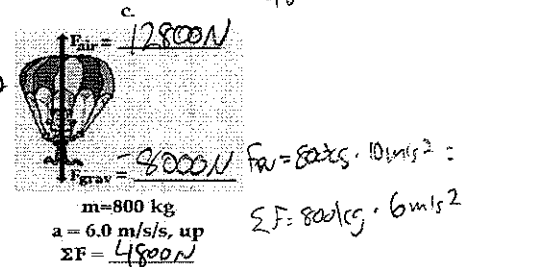 c.
F_air = 12800N
F_grav = -8000N
m=800 kg
a = 6.0 m/s/s, up
ΣF = 4800N
ΣF = 800kg · 6m/s²